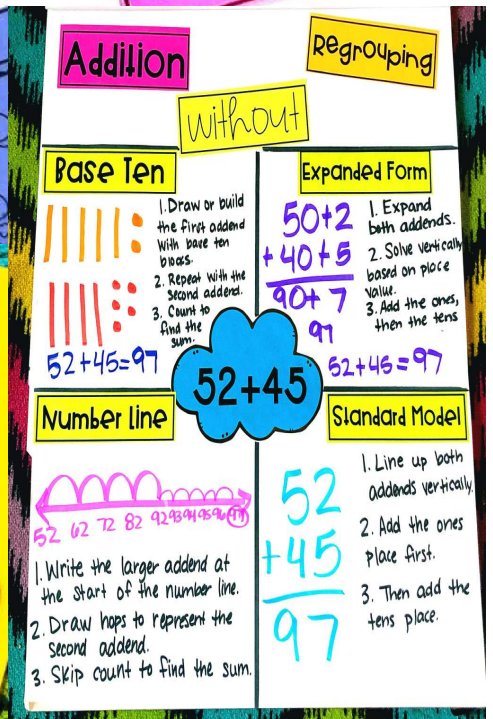 Addition
Regrouping
without
Base Ten
1. Draw or build
the first addend
with base ten
blocks.
2. Repeat with the
second addend.
3. Count to
find the
sum.
52+45=97
Expanded Form
50+2
+40+5
90+7
97
1. Expand
both addends.
2. Solve vertically
based on place
value.
3. Add the ones,
then the tens
52+45=97
52+45
Number Line
52 62 72 82 92 93 94 95 96 97
1. Write the larger addend at
the start of the number line.
2. Draw hops to represent the
second addend.
3. Skip count to find the sum.
Standard Model
52
+45
97
1. Line up both
addends vertically.
2. Add the ones
place first.
3. Then add the
tens place.